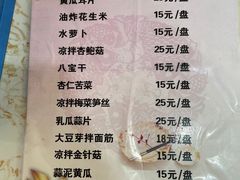 黄瓜耳片 15元/盘
油炸花生米 15元/盘
水萝卜 15元/盘
凉拌杏鲍菇 25元/盘
八宝干 15元/盘
杏仁苦菜 15元/盘
凉拌梅菜笋丝 25元/盘
乳瓜蒜片 25元/盘
大豆芽拌面筋 18元/盘
凉拌金针菇 15元/盘
蒜泥黄瓜 15元/盘